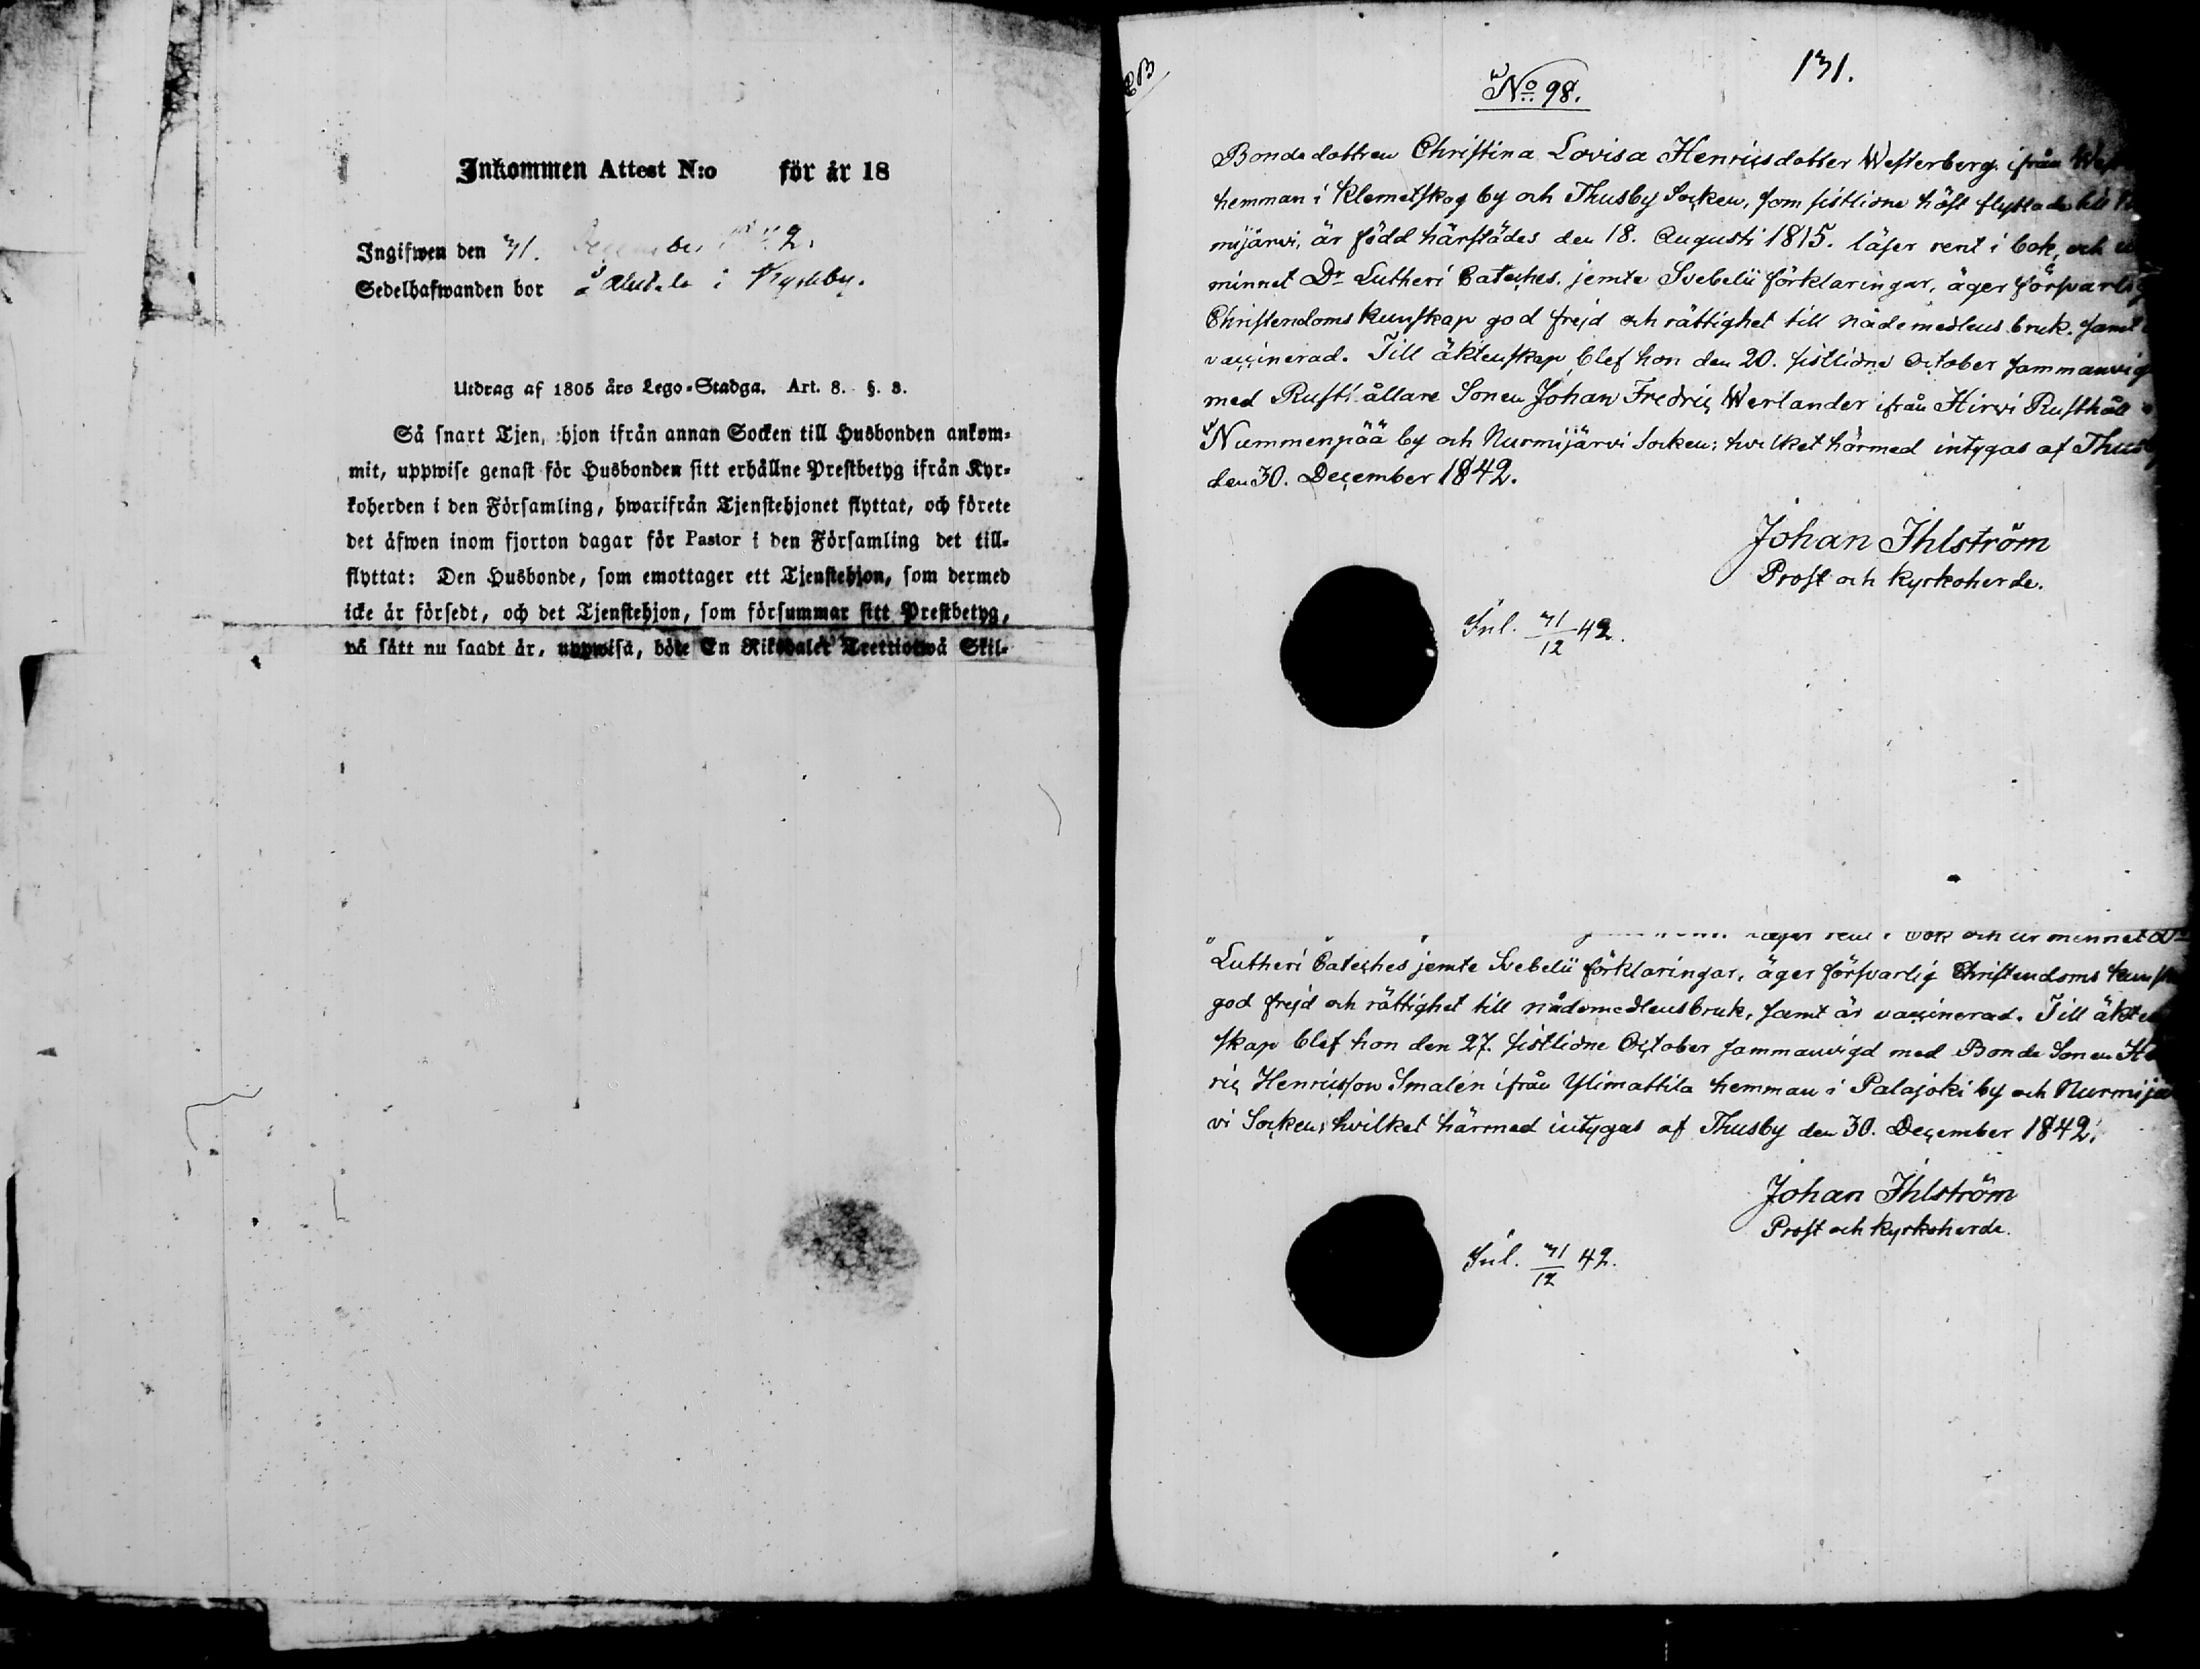 Inkommen Attest N:o för år 18
Ingifwen den 31. December 1842.
Sedelhafwanden bor å i Kyrkby.
Utdrag af 1805 års Lego-Stadga. Art. 8. §. 8.
Så snart Tjen, ehjon ifrån annan Socken till Husbonden ankom-
mit, uppwise genast för Husbonden sitt erhållne Prestbetyg ifrån Kyr-
koherden i den Församling, hwarifrån Tjenstehjonet flyttat, och förete
det äfwen inom fjorton dagar för Pastor i den Församling det till-
flyttat: Den Husbonde, som emottager ett Tjenstehjon, som dermed
icke är försedt, och det Tjenstehjon, som försummar sitt Prestbetyg,
på sätt nu sagdt är, uppwisa, böte En Riksdaler Trettiotwå Skil-
131.
No 98.
Bondedottren Christina Lovisa Henricsdotter Westerberg ifrån
hemman i Klemetskog by och Thusby Socken, som sistlidne höst flyttade till
mijärvi, är född härstädes den 18. Augusti 1815. läser rent i bok, och
minnet Dr Lutheri Cateches. jemte Svebelii förklaringar, äger försvarlig
Christendoms kunskap god frejd och rättighet till nådemedlens bruk. samt
vaccinerad. Till äktenskap blef hon den 20. sistlidne October sammanvigd
med Rusthållare Sonen Johan Fredric Werlander ifrån Hirvi Rusthåll
Nummenpää by och Nurmijärvi Socken; hvilket härmed intygas af Thusby
den 30. December 1842.
Johan Ihlström
Prost och Kyrkoherde.
Inl. 31/12 42.
läser rent i bok och ur minnet Dr
Lutheri Cateches jemte Svebelii förklaringar, äger försvarlig Christendoms kunska
god frejd och rättighet till nådemedlens bruk, samt är vaccinerad. Till äkten
skap blef hon den 27. sistlidne October sammanvigd med Bonde Sonen Hen
ric Henricsson Smalén ifrån Ylimattila hemman i Palajoki by och Nurmijär
vi Socken; hvilket härmed intygas af Thusby den 30. December 1842.
Johan Ihlström
Prost och Kyrkoherde.
Inl. 31/12 42.